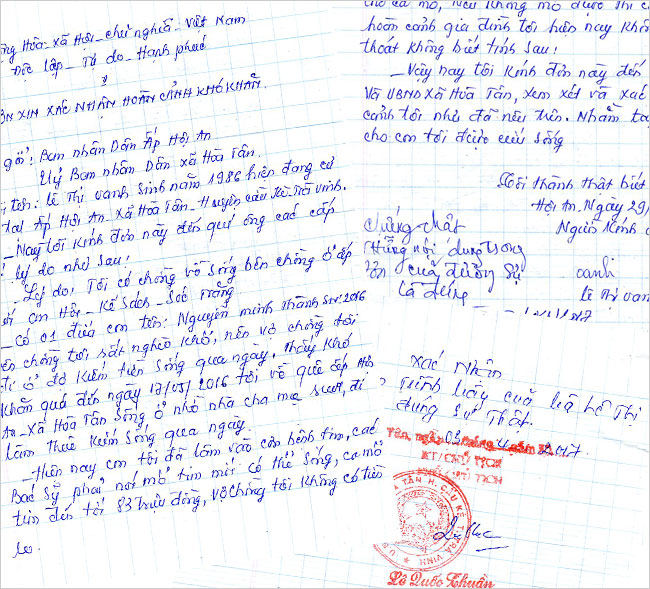 Hòa - Xã Hội - chủ nghĩa - Việt Nam
Độc lập - Tự do - Hạnh phúc
XIN XÁC NHẬN HOÀN CẢNH KHÓ KHĂN.
gởi: Ban nhân Dân Ấp Hội An
Uỷ Ban nhân Dân xã Hòa Tân.
tên: Lê Thị vanh Sinh năm 1986 hiện đang cư
tại Ấp Hội An - Xã Hòa Tân - Huyện cầu Kè - Trà Vinh.
- Nay tôi Kính đơn này đến quý ông các cấp
lý do như sau:
Lý do: Tôi có chồng về Sống bên chồng ở ấp
An Hội - Kế Sách - Sóc Trăng
- Có 01 đứa con tên: Nguyễn minh thành 2016
chồng tôi rất nghèo khó, nên vợ chồng tôi
ở đó Kiếm tiền Sống qua ngày, thấy Khó
Khăn quá đến ngày 17/05/2016 tôi về quê ấp Hội
An - Xã Hòa Tân Sống ở nhờ nhà cha mẹ ruột, đi
làm thuê Kiếm Sống qua ngày.
- hiện nay con tôi đã lâm vào căn bệnh tim, các
Bác Sỹ phải nơi mổ tim mới có thể Sống, ca mổ
tim đến tới 83 triệu đồng, vợ chồng tôi không có tiền
lo.
cho ca mổ, nếu không mổ được thì
hoàn cảnh gia đình tôi hiện nay không
thoát không biết tính sau!
- Vậy nay tôi Kính đơn này đến
Và UBND Xã Hòa Tân, xem xét và xác
cảnh tôi như đã nêu trên. Nhằm
cho con tôi được cứu sống
Tôi thành thật biết
Hội An, Ngày 29/
Người Kính
vanh
Lê Thị van
Chứng thật
Những nội dung trong
đơn của đương Sự
là đúng
Xác Nhận
trình bày của bà Lê Thị
đúng sự thật.
Tân, ngày 03 tháng 4 năm 2017
KT/CHỦ TỊCH
PHÓ CHỦ TỊCH
TÂN H. CẦU KÈ T. TRÀ VINH
Lê Quốc Thuần